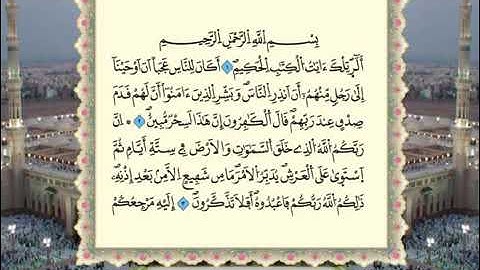 بِسْمِ اللَّهِ الرَّحْمَٰنِ الرَّحِيمِ
أَلَٓر تِلْكَ ءَايَٰتُ الْكِتَٰبِ الْحَكِيمِ ١ أَكَانَ لِلنَّاسِ عَجَبًا أَنْ أَوْحَيْنَآ
إِلَىٰ رَجُلٍ مِّنْهُمُۥٓ أَنْ أَنذِرِ النَّاسَ وَبَشِّرِ الَّذِينَ ءَامَنُوٓا۟ أَنَّ لَهُمْ قَدَمَ
صِدْقٍ عِندَ رَبِّهِمْ قَالَ الْكَٰفِرُونَ إِنَّ هَٰذَا لَسِحْرٌ مُّبِينٌ ٢ إِنَّ
رَبَّكُمُ اللَّهُ الَّذِي خَلَقَ السَّمَٰوَٰتِ وَالْأَرْضَ فِي سِتَّةِ أَيَّامٍ ثُمَّ
اسْتَوَىٰ عَلَى الْعَرْشِ يُدَبِّرُ الْأَمْرَ مَا مِن شَفِيعٍ إِلَّا مِنۢ بَعْدِ إِذْنِهِۦ
ذَٰلِكُمُ اللَّهُ رَبُّكُمْ فَاعْبُدُوهُ أَفَلَا تَذَّكَّرُونَ ٣ إِلَيْهِ مَرْجِعُكُمْ